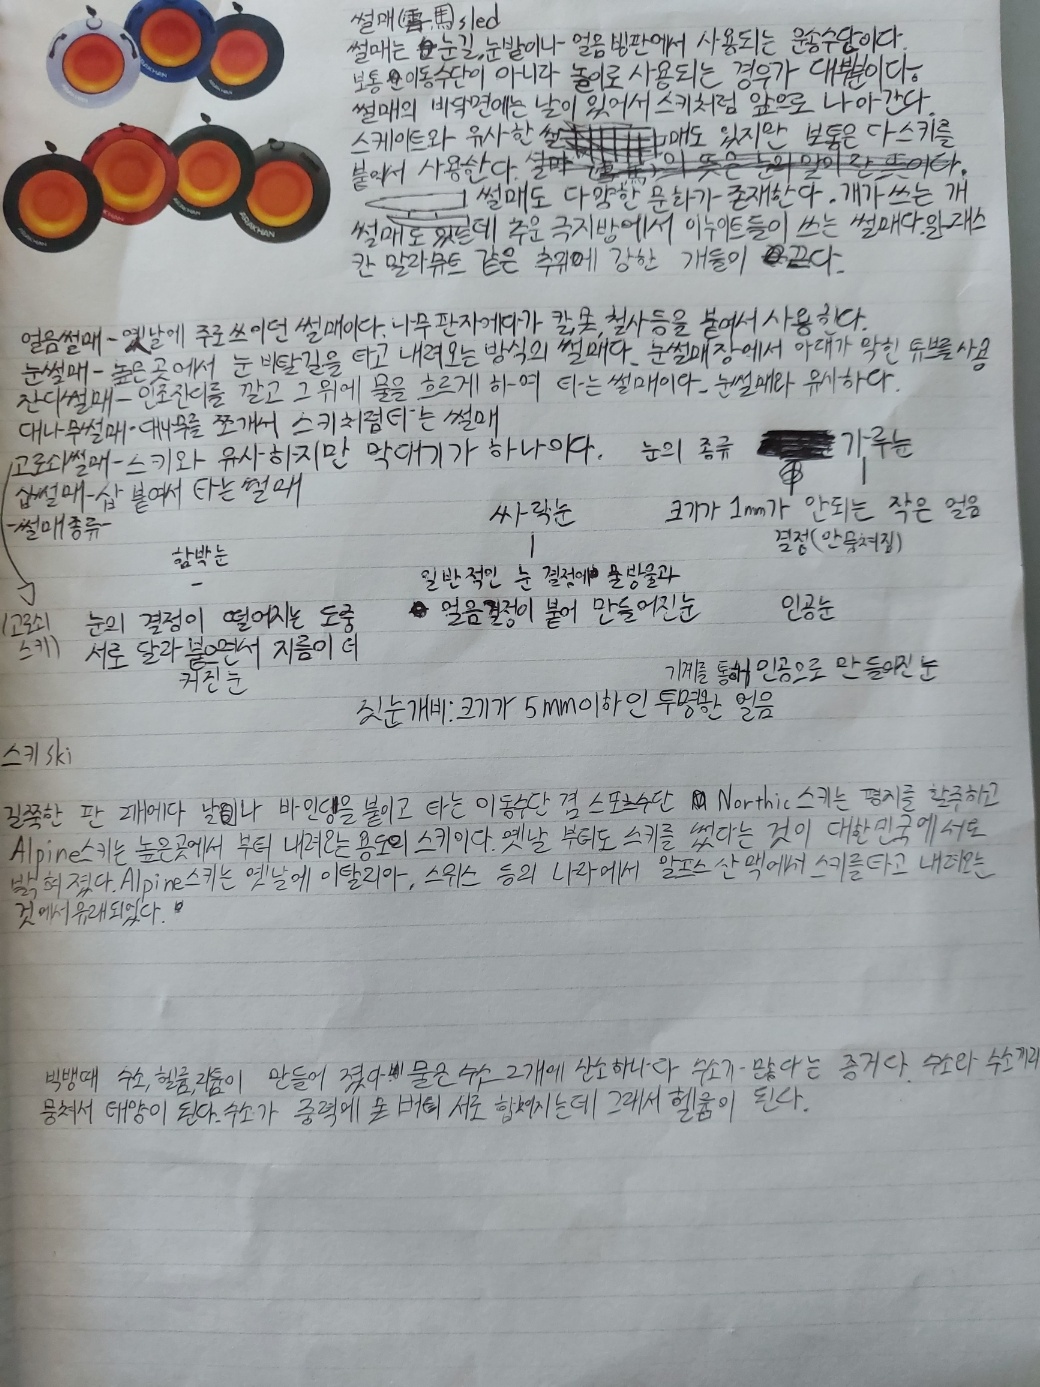 썰매(雪馬)sled
썰매는 눈길,눈밭이나 얼음 빙판에서 사용되는 운송수단이다.
보통 이동수단이 아니라 놀이로 사용되는 경우가 대별이다.
썰매의 바닥면에는 날이 있어서 스키처럼 앞으로 나아간다.
스케이트와 유사한 썰매도 있지만 보통은 다 스키를
붙여서 사용한다.
썰매도 다양한 문화가 존재한다. 개가 쓰는 개
썰매도 있는데 추운 극지방에서 이누이트들이 쓰는 썰매다.
말라뮤트 같은 추위에 강한 개들이 끈다.
얼음썰매-옛날에 주로 쓰이던 썰매이다. 나무 판자에다가 칼,못,철사등을 붙여서 사용한다.
눈썰매-높은 곳에서 눈 비탈길을 타고 내려오는 방식의 썰매다. 눈썰매장에서 아래가 막힌 튜브를 사용
잔디썰매-인조잔디를 깔고 그 위에 물을 흐르게 하여 타는 썰매이다. 눈썰매와 유사하다.
대나무썰매-대나무를 쪼개서 스키처럼 타는 썰매
고로쇠썰매-스키와 유사하지만 막대기가 하나이다.
눈의 종류
가루눈
삽썰매-삽 붙여서 타는 썰매
-썰매종류-
싸락눈
크기가 1mm가 안되는 작은 얼음
결정(안뭉쳐짐)
함박눈
일반적인 눈 결정에 물방울과
얼음결정이 붙어 만들어진눈
인공눈
(고로쇠
스키)
눈의 결정이 떨어지는 도중
서로 달라 붙으면서 지름이 더
커진 눈
기계를 통해 인공으로 만들어진 눈
진눈개비:크기가 5mm이하인 투명한 얼음
스키 ski
길쭉한 판 2개에다 날이나 바인딩을 붙이고 타는 이동수단 겸 스포츠수단 Northic 스키는 평지를 활주하고
Alpine스키는 높은곳에서 부터 내려오는 용도의 스키이다. 옛날 부터도 스키를 썼다는 것이 대한민국에서도
밝혀졌다. Alpine스키는 옛날에 이탈리아, 스위스 등의 나라에서 알프스 산맥에서 스키를 타고 내려오는
것에서 유래되었다.
빅뱅때 수소,헬륨,리튬이 만들어 졌다 물은 수소 2개에 산소하나다 수소가 많다는 증거다. 수소와 수소끼리
뭉쳐서 태양이 된다. 수소가 중력에 못 버텨 서로 합쳐지는데 그래서 헬륨이 된다.